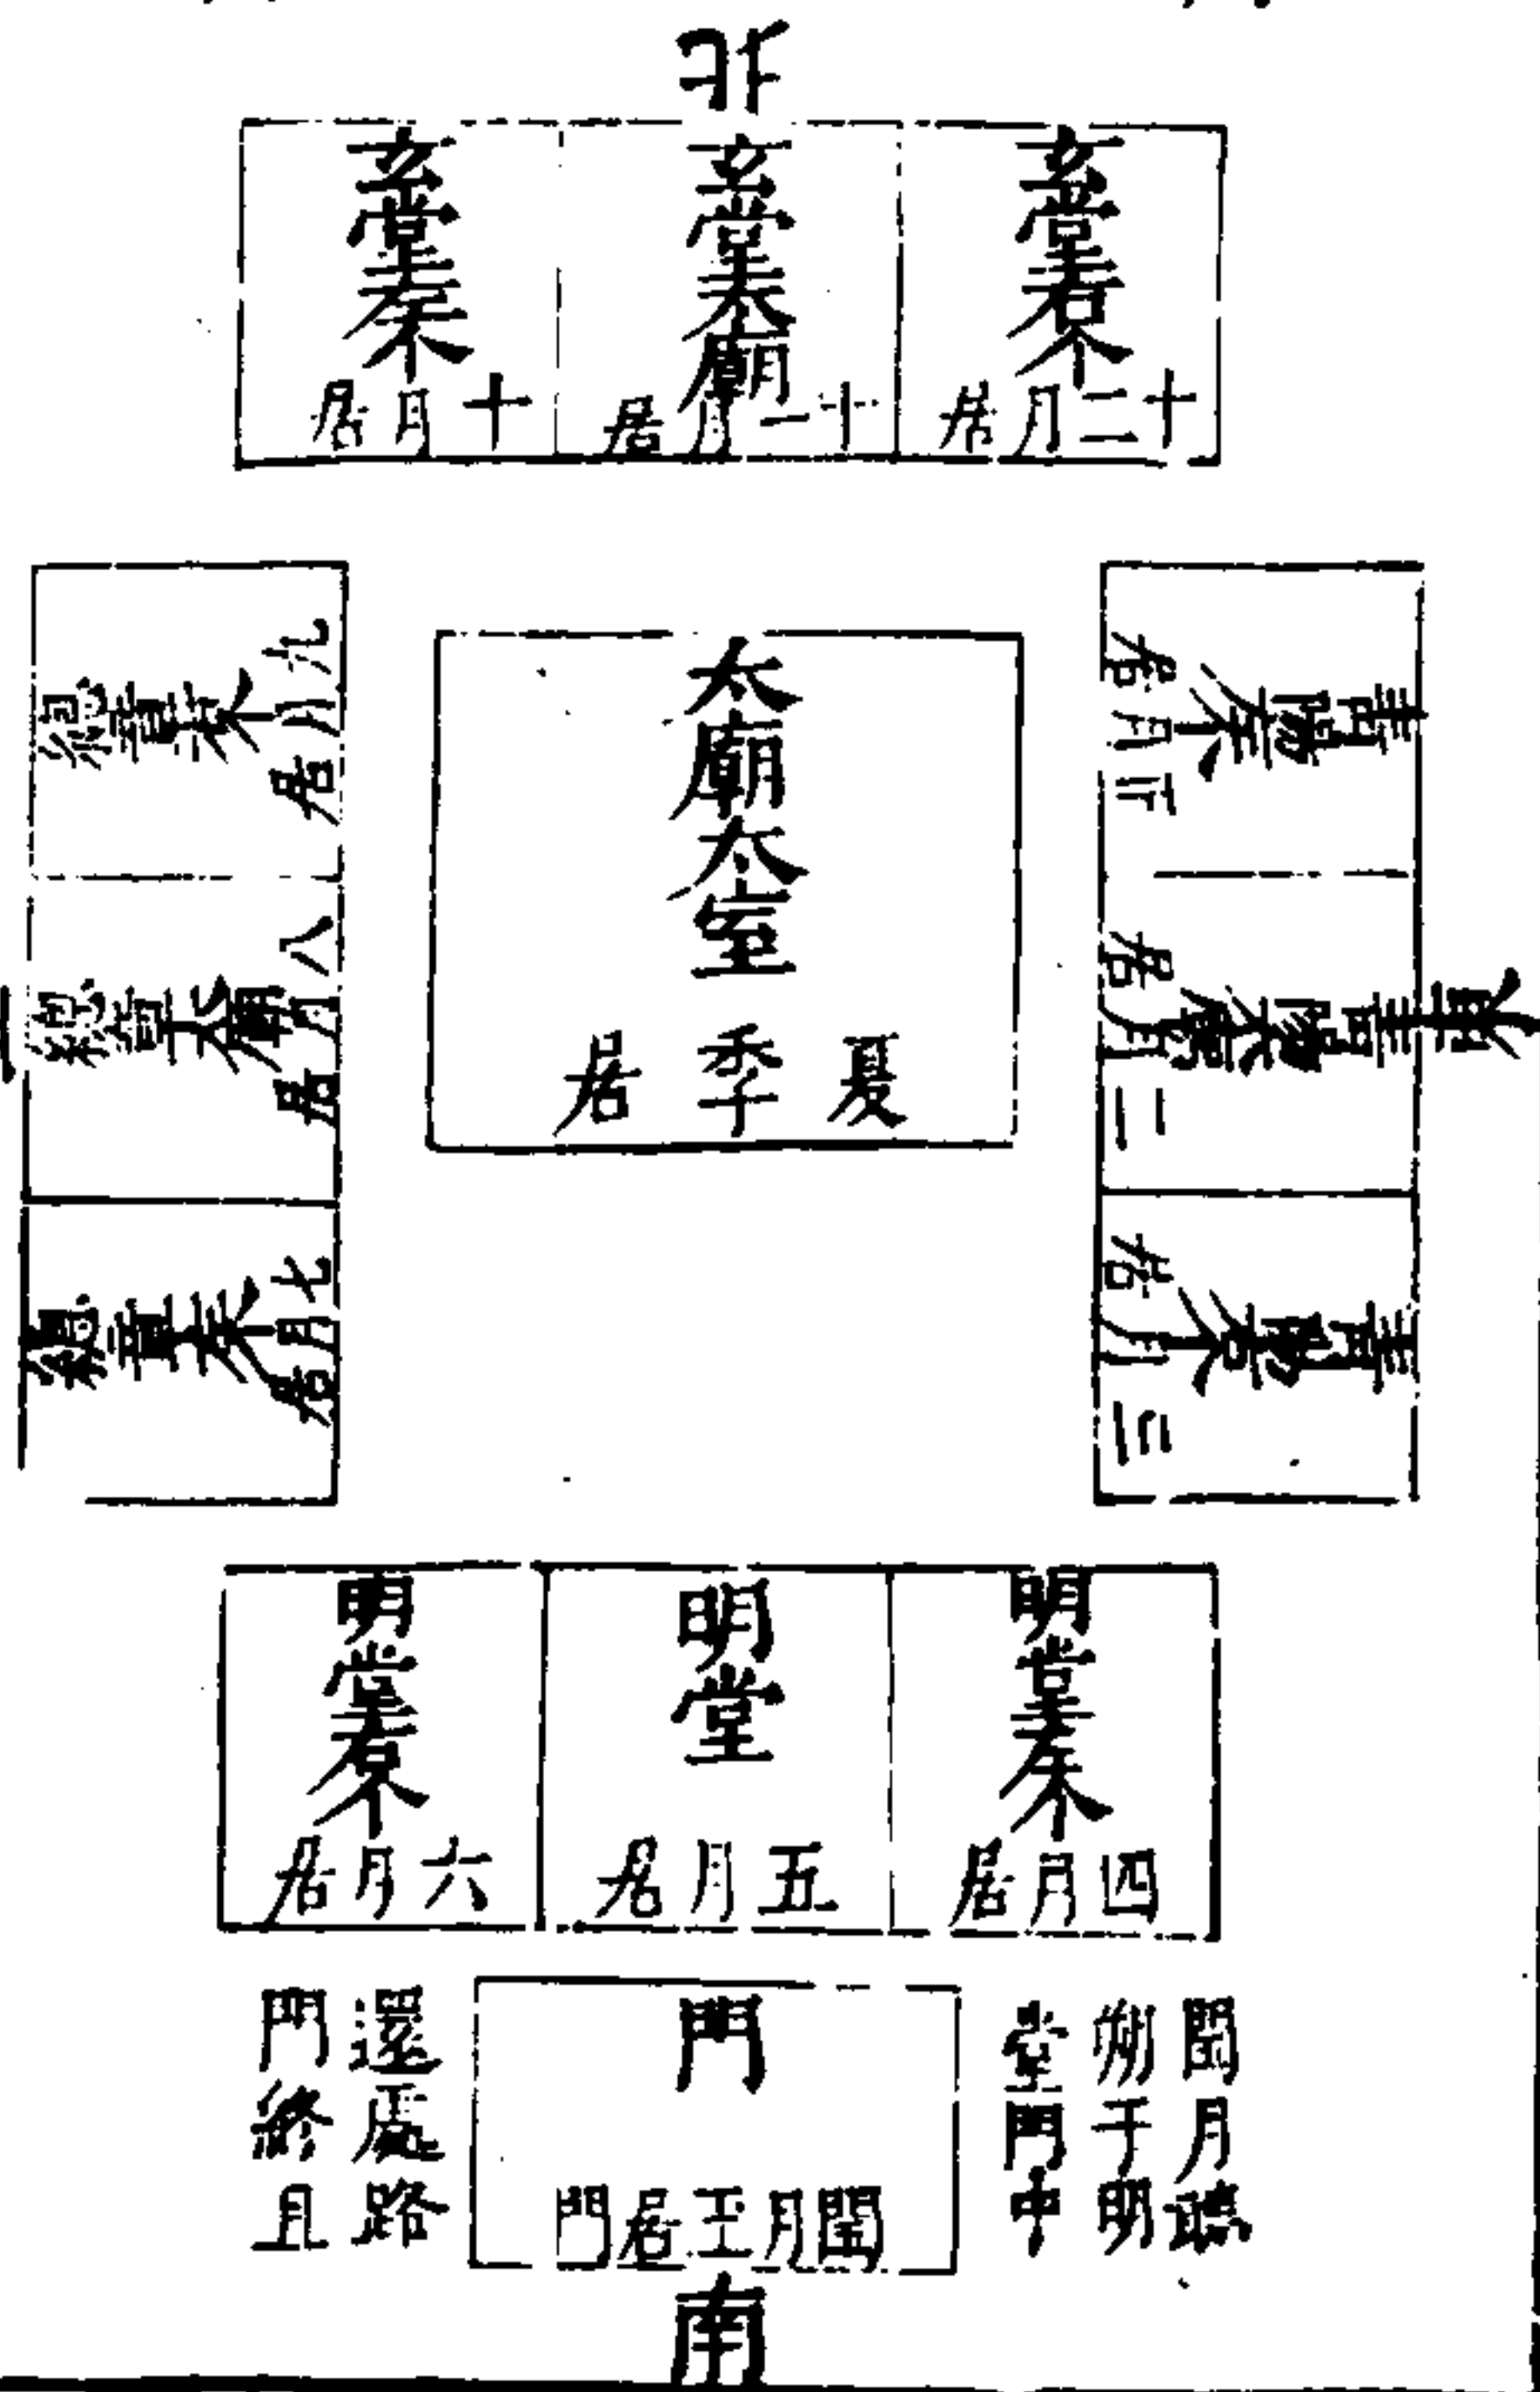 北
玄堂右个
十二月居
玄堂太廟
十一月居
玄堂左个
十月居
東
青陽左个
正月居
青陽太廟
二月居
青陽右个
三月居
太廟太室
夏季居
總章右个
九月居
總章太廟
八月居
總章左个
七月居
明堂左个
四月居
明堂
五月居
明堂右个
六月居
閏月聽
朔于明
堂門中
門
閏月王居門
還處路
門終月
南